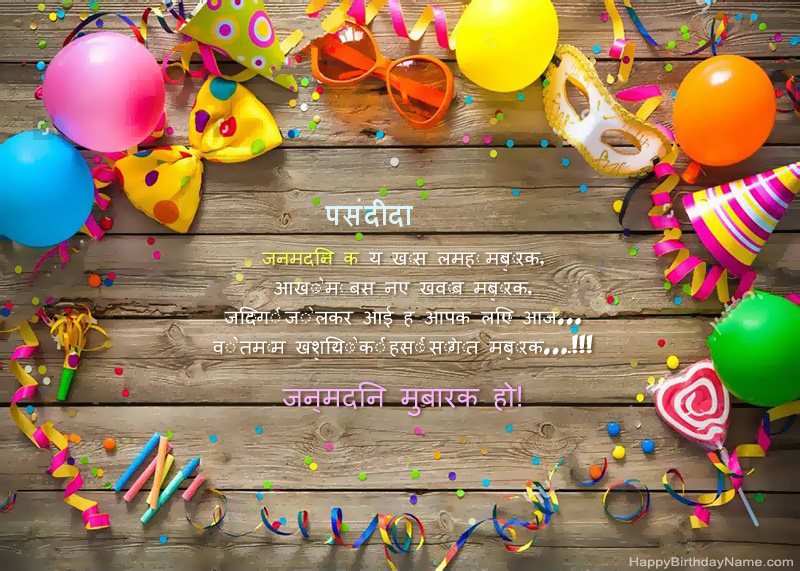 पसंदीदा
जनमदनि क य खास लमह मबारक,
आखों में बस नए खवाब मबारक,
जदिगी जो लकर आई ह आपक लएि आज...
वो तमाम खशयिों की हसी सौगात मबारक...!!!
जन्मदनि मुबारक हो!
HappyBirthdayName.com